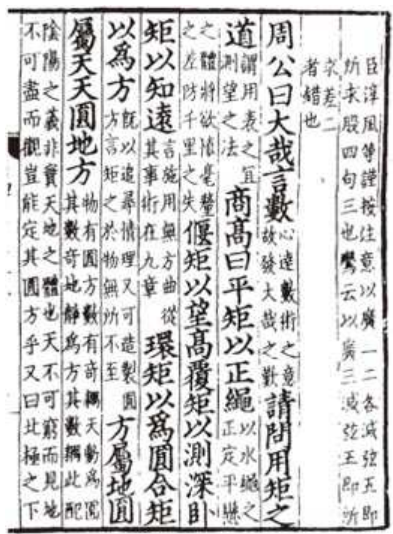 臣淳風等謹按注意以廣一二各減弦五即
所求股四句三也鸞云以廣三減弦五即所
求差二
者錯也
周公曰大哉言數心達數術之意故發大哉之歎請問用矩之
道謂用表之宜測望之法商高曰平矩以正繩以水繩之正定平懸
之體將欲慎毫釐之差防千里之失偃矩以望高覆矩以測深臥
矩以知遠言施用無方曲從其事術在九章環矩以為圓合矩
以為方既以追尋情理又可造製圓方言矩之於物無所不至方屬地圓
屬天天圓地方物有圓方數有奇耦天動為圓其數奇地靜為方其數耦此配
陰陽之義非實天地之體也天不可窮而見地
不可盡而觀豈能定其圓方乎又曰北極之下